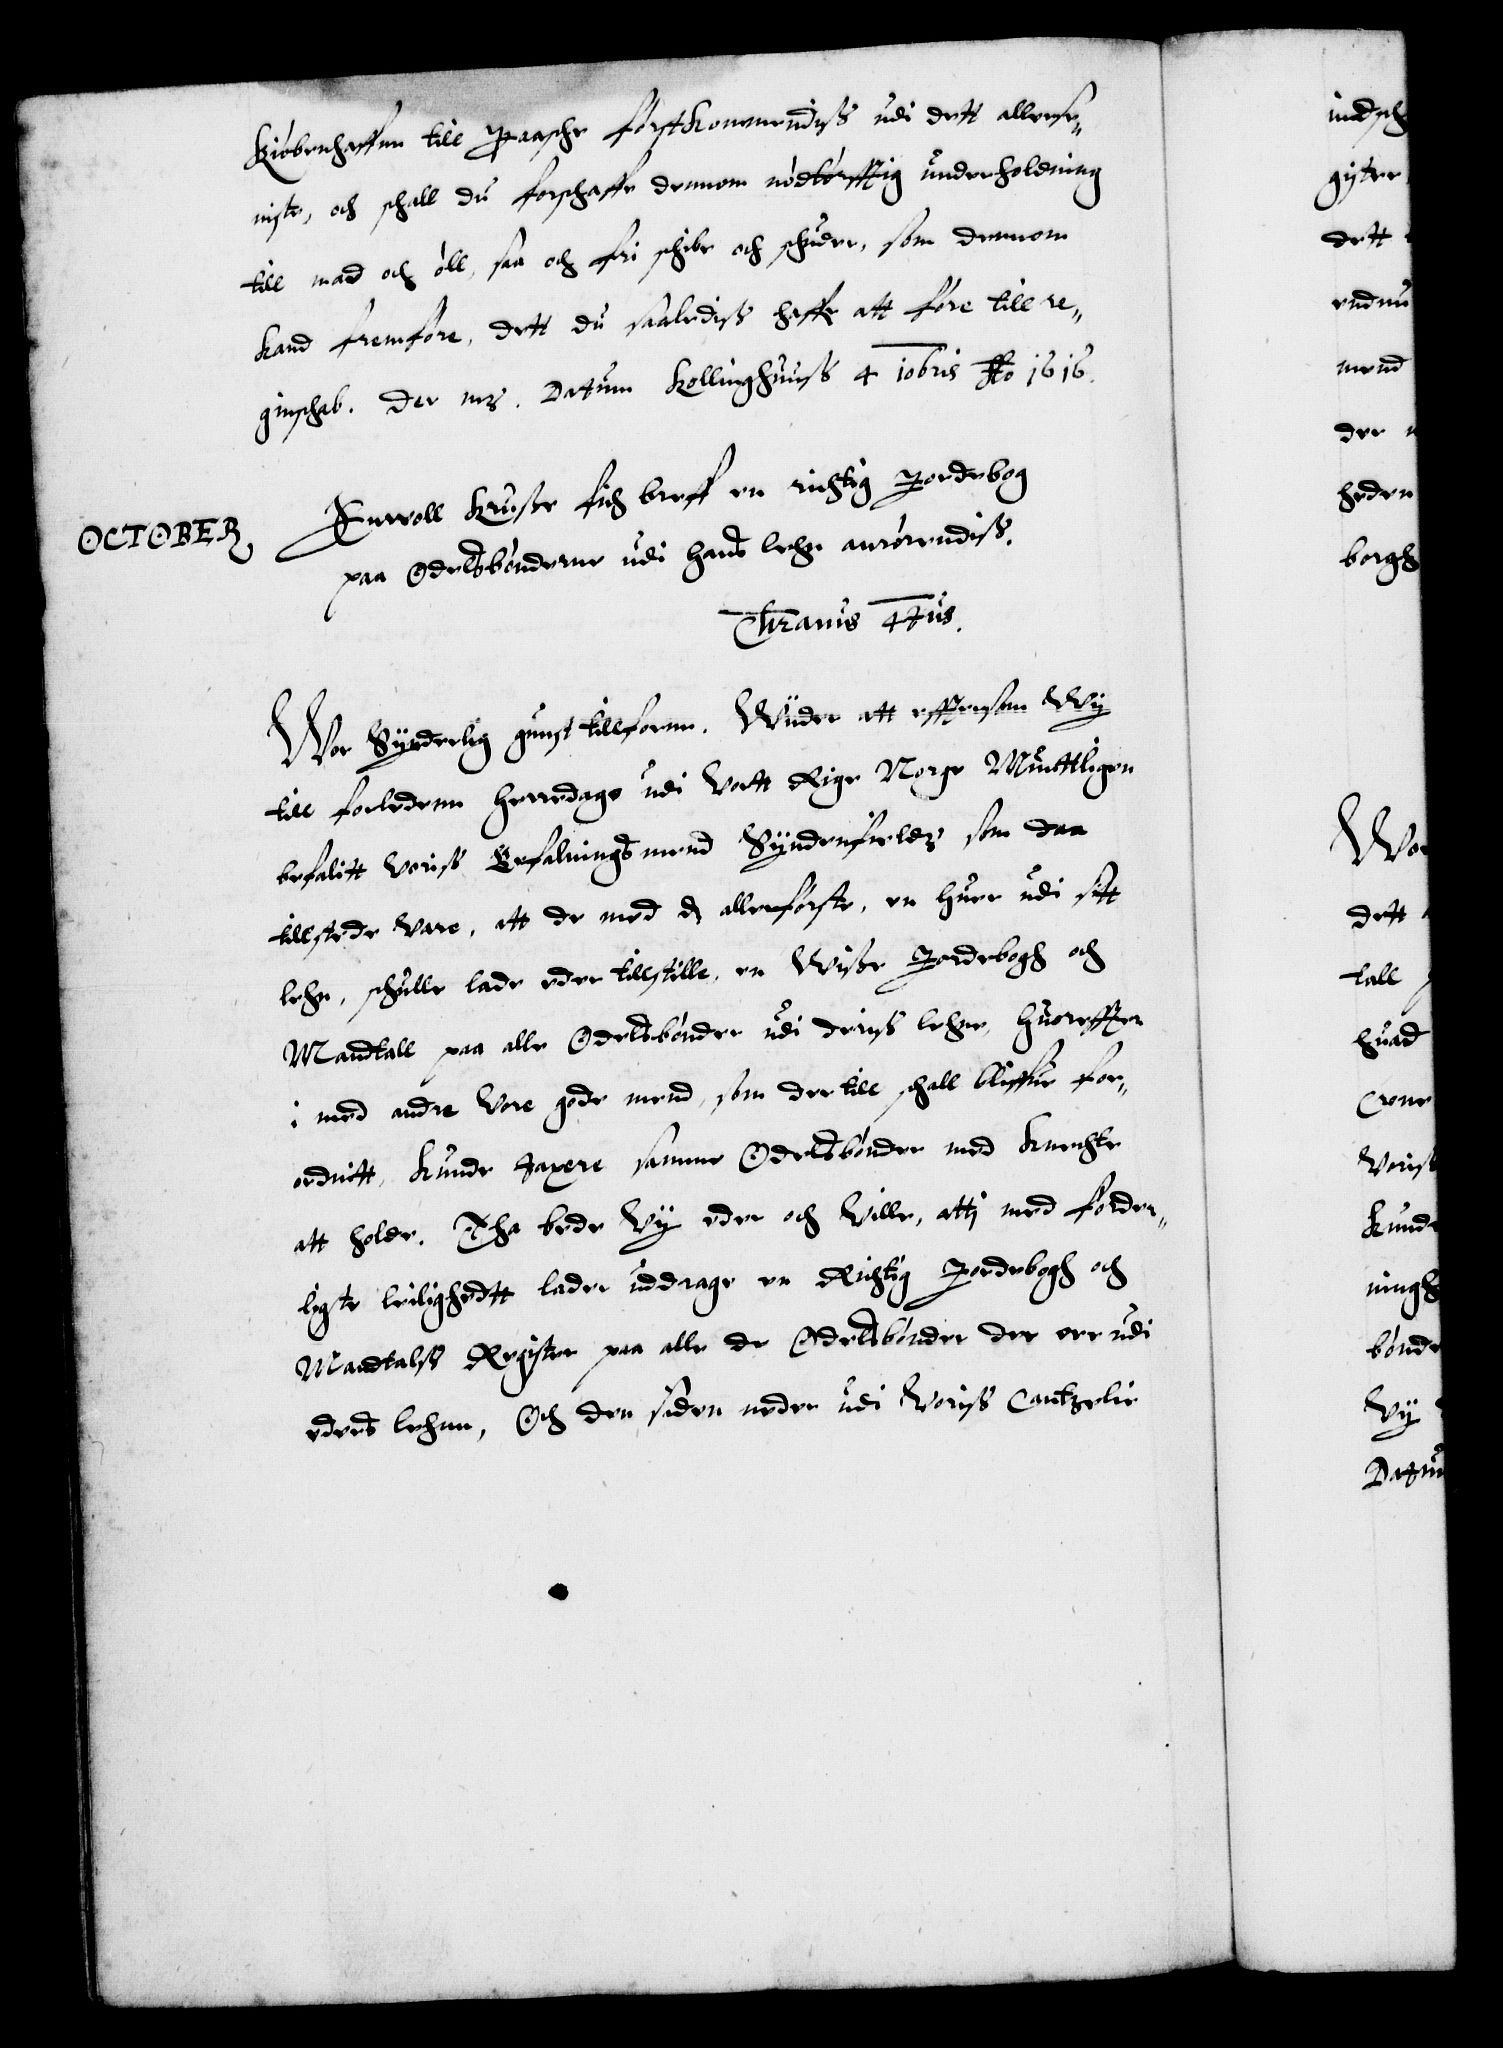 Kiøbenhaffun till Paaskeførstkommendiss udi dett allerse-
niste, och schall du forschaffe dennom nødtørfftig underholdning
till mad och øll, saa och fri schibe och schuder, som dennom
kand fremføre, dett du saaledis haffr att føre till re-
ginschab. Der mz. Datum Kollinghuuss 4 10bris Ao 1616.
OCTOBER
Enevoll Kruse fich breff en richtig Jordebog
paa Odelsbønderne udi hans lehn anrørendiss.
Christianus 4tus.
Wor Synderlig gunst tillfornn. Wiider att efftersom Wy
till forledenn Herredage udi Vortt Rige Norge Mundtligen
befalitt Voriss Befalningsmend Syndenfields som daa
tillstede Vare, att de med d allerførste, en huer udi sitt
lehn, schulle lade eder tillstille, en Wisse Jordebogh och
Mandtall paa alle Odelsbønder udi deriss lehne, huoreffter
i med andre Vore gode mend, som der till schall bliffue for-
ordnitt, kunde taxere samme Odelsbønder med knechte
att holde. Tha bede Wy eder och Wille, atti med forder-
ligste leilighedtt lader uddrage en Richtig Jordebogh och
Mandtalss Register paa alle de Odelsbønder der ere udi
eders lehnn, Och den siden neder udi Voriss Cantzelie
indsch
gister
dett
endnu
mend
der
heden
borgh
Wor
dett
tall
huad
Crone
Voriss
kunde
ningh
bønde
Wy
Datum